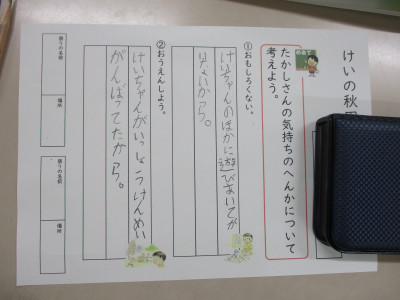 けいの秋
たかしさんの気持ちのへんかについて
考えよう。
①おもしろくない。
けいちゃんのほかに遊びあいてが
いないから。
②おうえんしよう。
けいちゃんがいっしょうけんめい
がんばってたから。
祭りの名前
場所
祭りの名前
場所